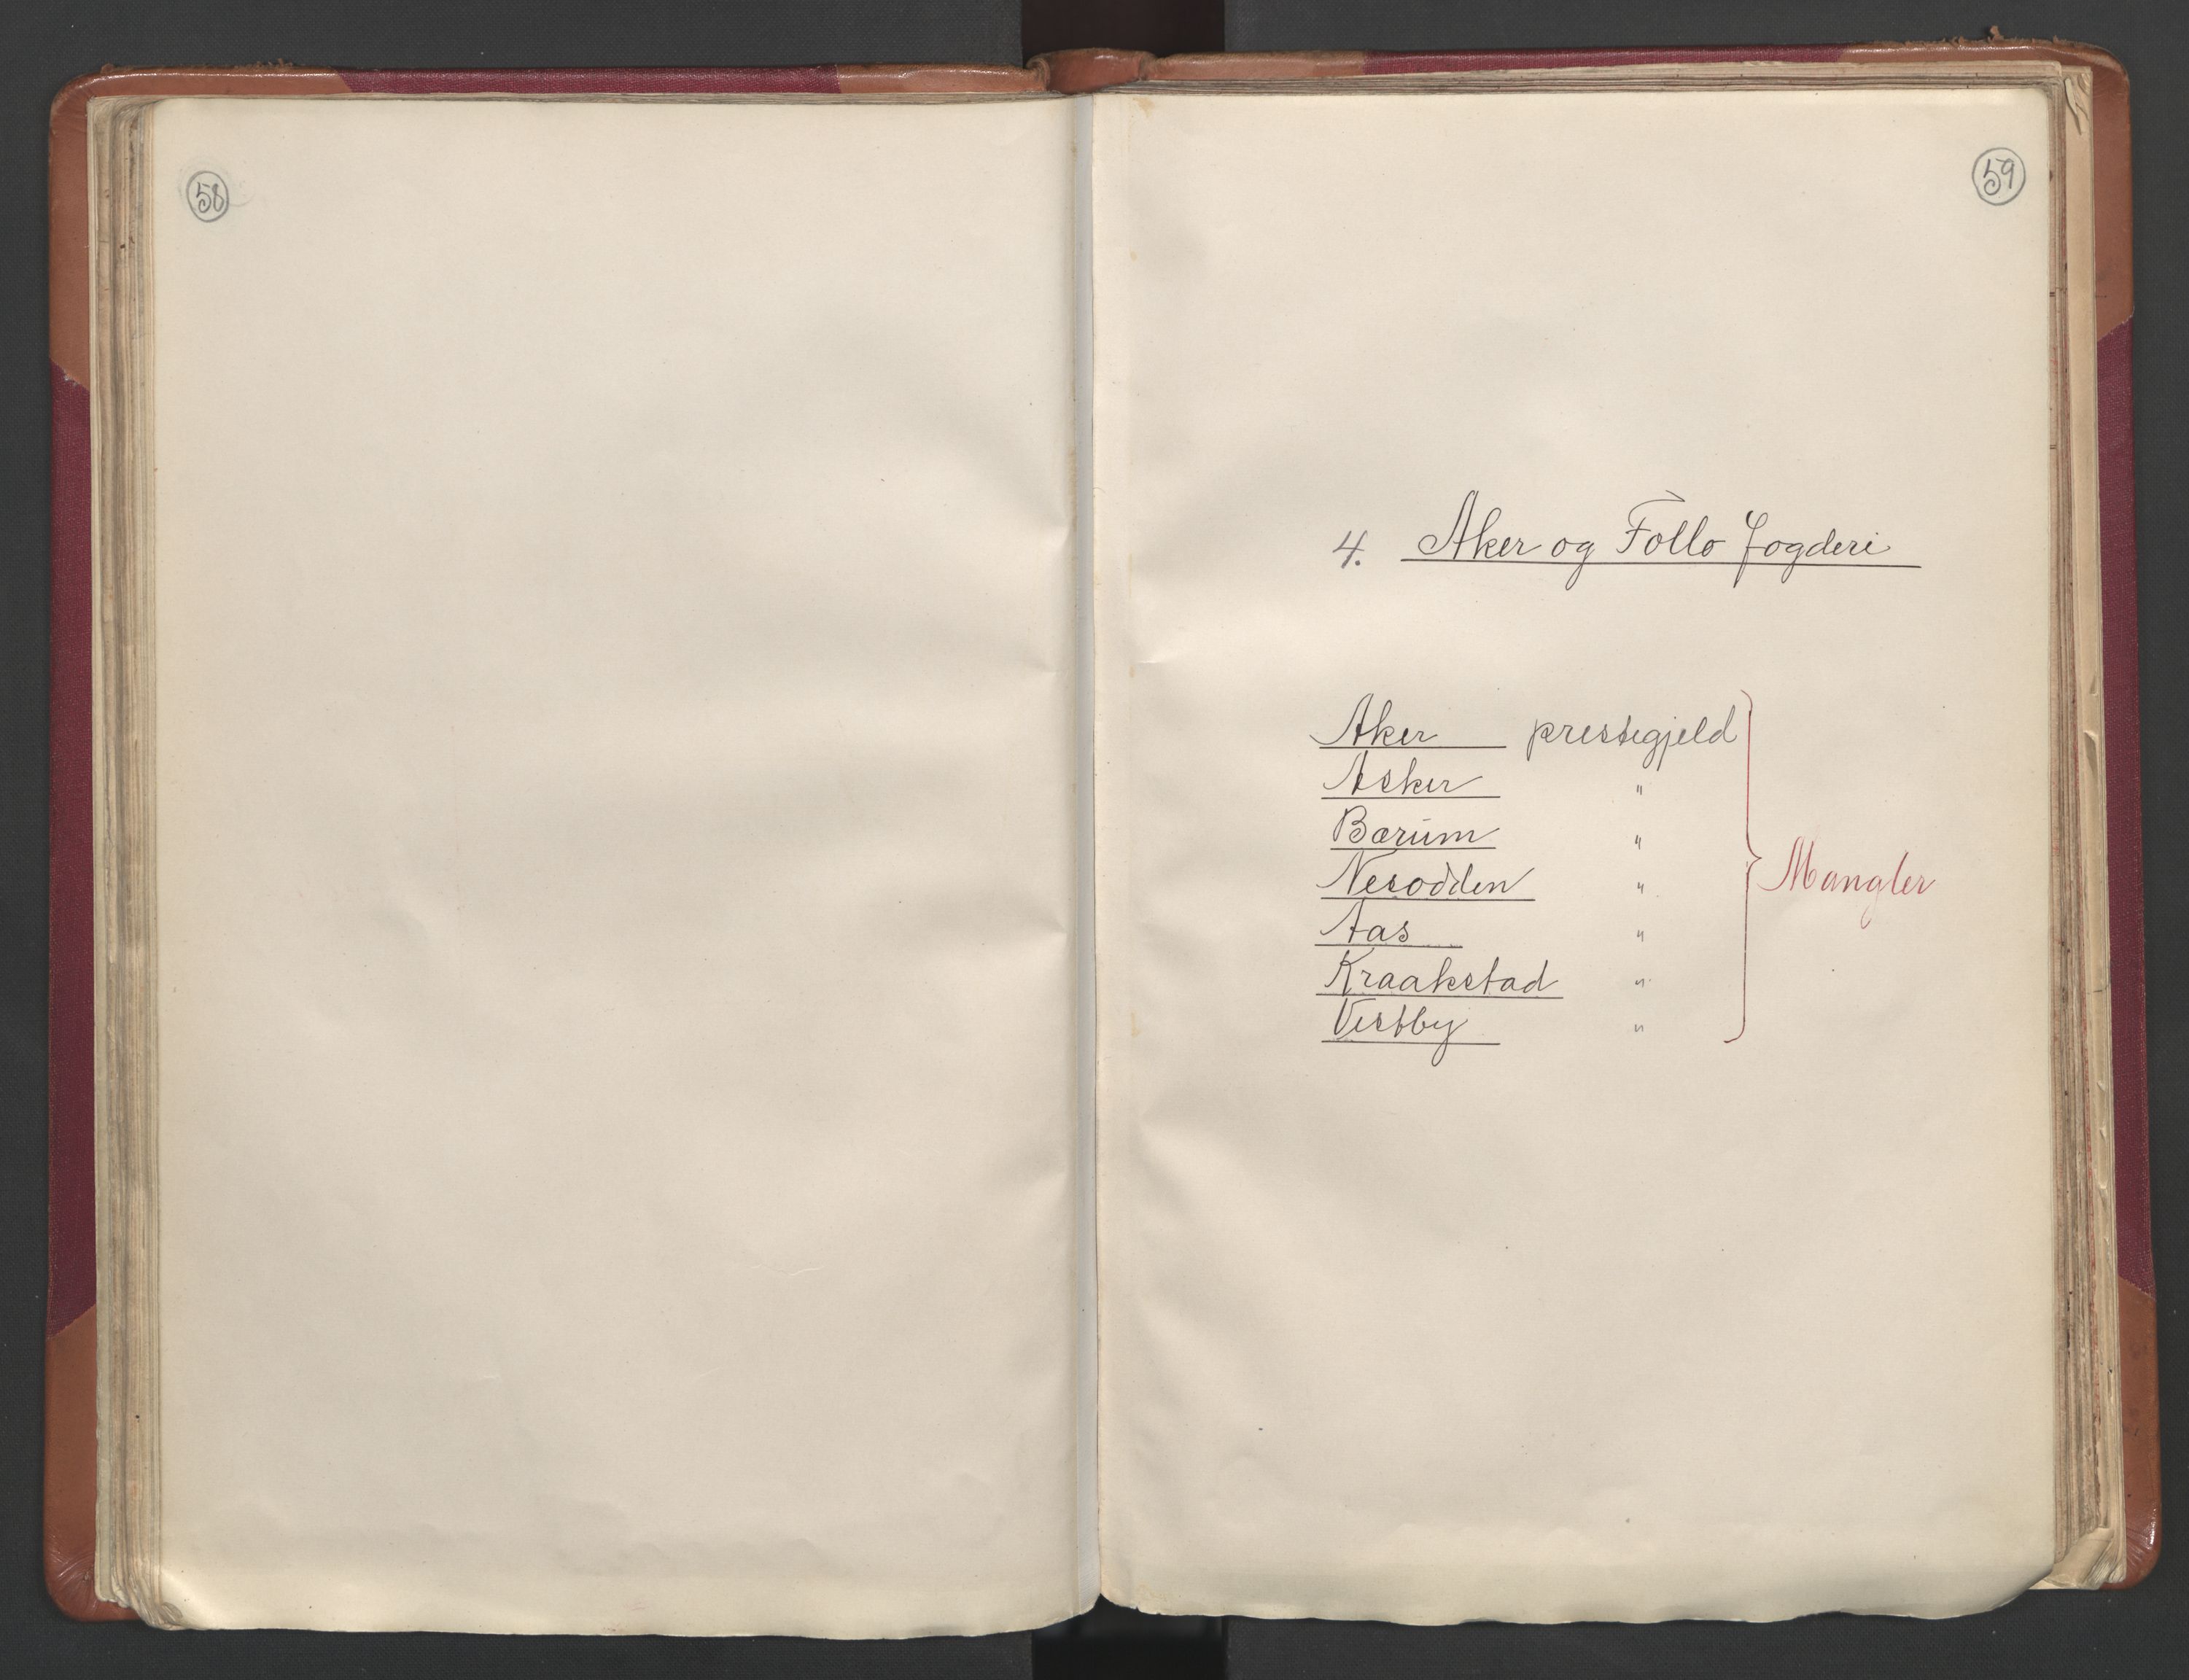 58
59
4. Aker og Follo fogderi
Aker prestegjeld
Asker "
Bærum "
Nesodden "
Aas "
Kraakstad "
Vestby "
Mangler